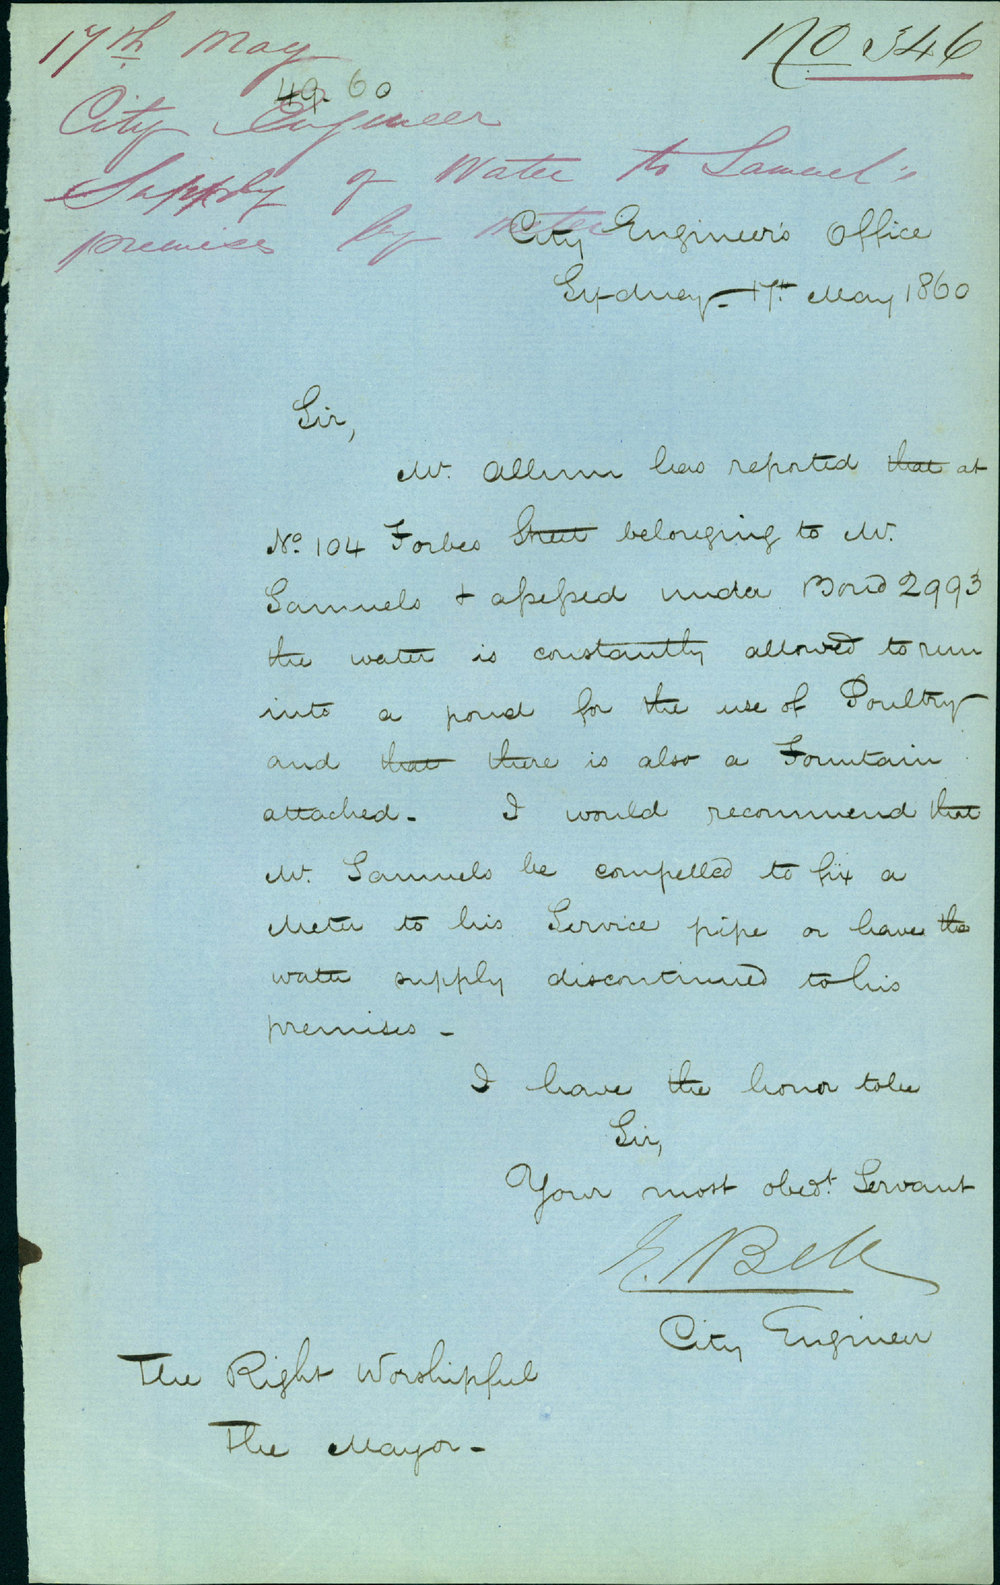 17th May
No 346
49. 60
City Engineer
Supply of Water to Samuel's
premises by meter
City Engineer's Office
Sydney - 17th May 1860
Sir,
Mr. Allum has reported that at
No. 104 Forbes Street belonging to Mr.
Samuels & assessed under Bond 2993
the water is constantly allowed to run
into a pond for the use of Poultry
and that there is also a Fountain
attached - I would recommend that
Mr. Samuels be compelled to fix a
Meter to his Service pipe or have the
water supply discontinued to his
premises -
I have the honor to be
Sir,
Your most obedt. Servant
E. Bell
City Engineer
The Right Worshipful
The Mayor -